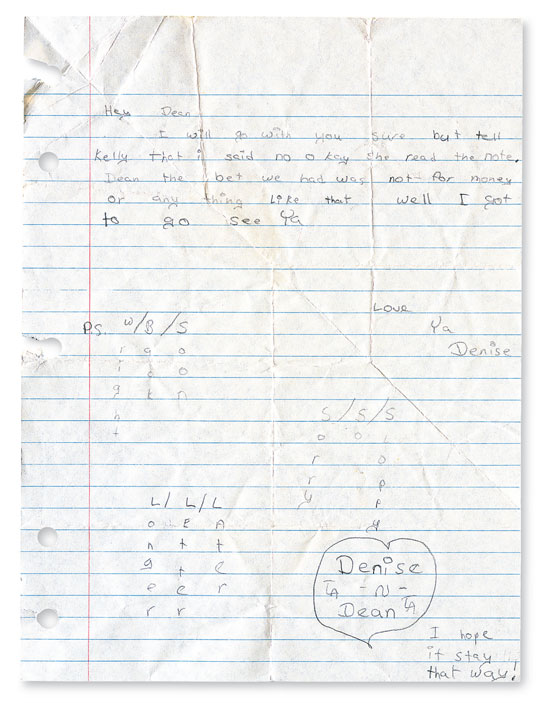 Hey Dean
I will go with you sure but tell
Kelly that i said no o kay she read the note.
Dean the bet we had was not for money
or any thing like that well I got
to go see Ya
Love
Ya
Denise
P.S. W/B/S
r a o
i c o
g k n
h
t
S/S/S
o o l
r o
r p
y p
y
L/L/L
o E A
n t t
g t e
e e r
r r
Denise
-N-
Dean
I hope
it stay
that way!